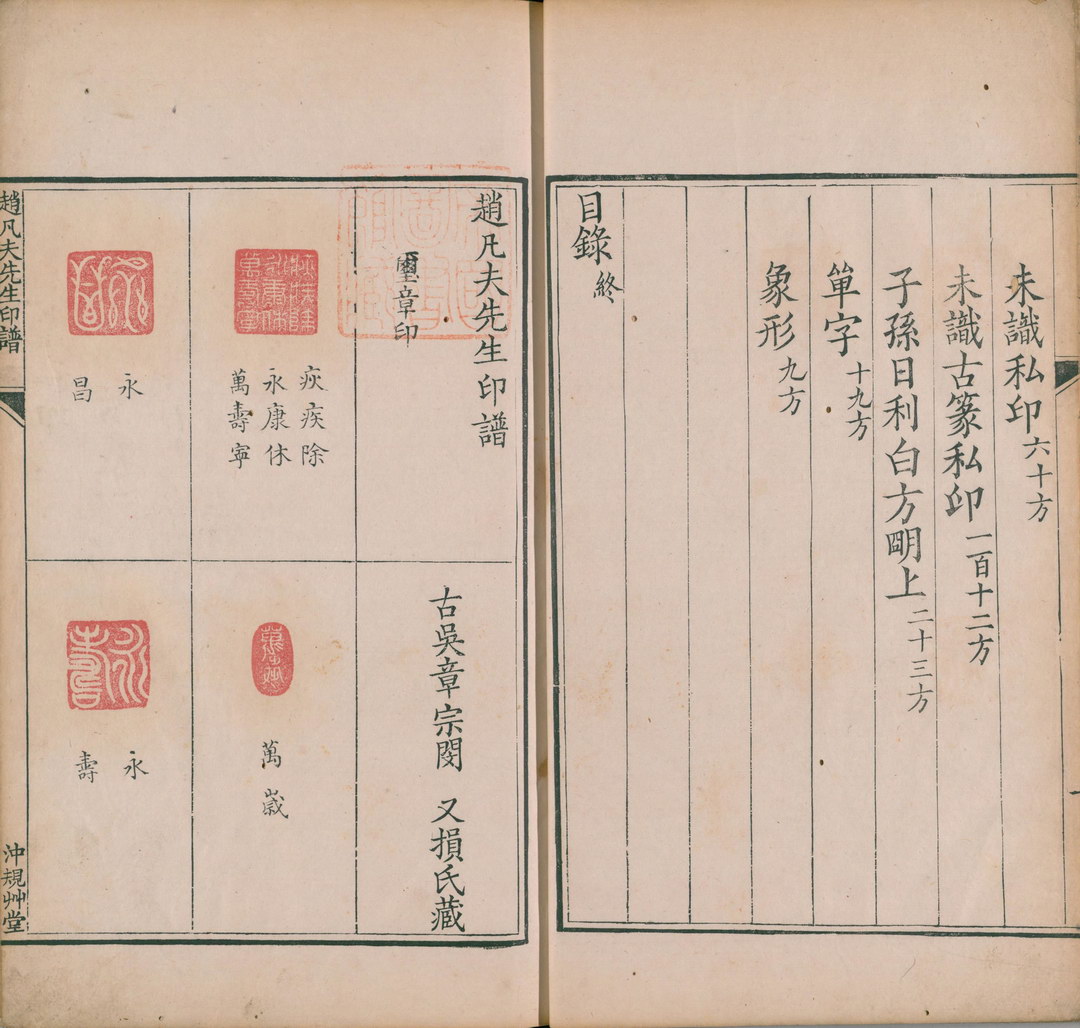 未識私印六十方
未識古篆私印一百十二方
子孫日利白方朙上二十三方
單字十九方
象形九方
目錄終
趙凡夫先生印譜
古吳章宗閔 又損氏藏
璽章印
疢疾除
永康休
萬壽寧
萬歲
永
昌
永
壽
趙凡夫先生印譜
沖規艸堂